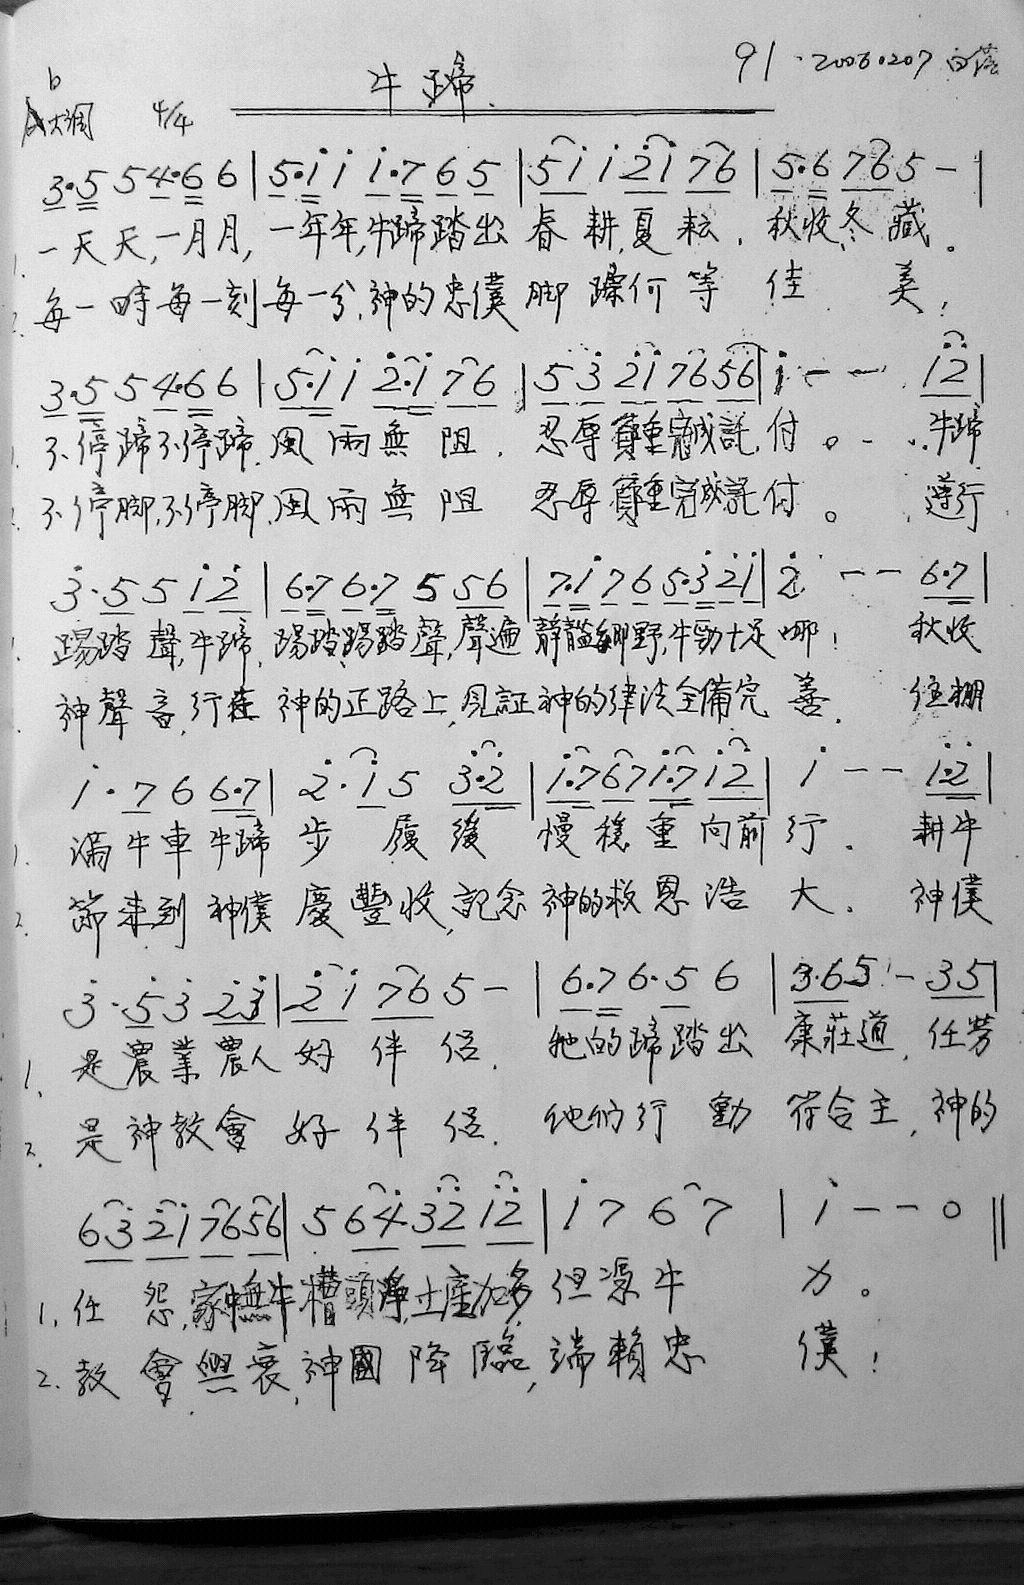 牛蹄
91 · 20060207
b
A大調 4/4
3·5 5 4·6 6 | 5·i i i·7 6 5 | 5 i i 2̇ i 7 6 | 5·6 7 6 5 - |
1. 一天天,一月月,一年年,牛蹄踏出 春耕,夏耘.秋收冬藏。
2. 每一時每一刻每一分,神的忠僕脚踪何等佳美,
3·5 5 4·6 6 | 5·i i 2̇·i 7 6 | 5 3̇ 2̇ i 7 6 5 6 | i - - i 2̇ |
1. 不停蹄不停蹄.風雨無阻.忍辱負重完成託付。牛蹄
2. 不停脚,不停脚,風雨無阻 忍辱負重完成託付。遵行
3̇·5 5 i 2̇ | 6·7 6·7 5 5 6 | 7·i 7 6 5·3̇ 2̇ i | 2̇ - - 6·7 |
1. 踢踏聲,牛蹄.踢踏踢踏聲,聲遍靜謐鄉野,牛勁十足哪!秋收
神聲音,行在神的正路上,見証神的律法全備完善.住棚
i·7 6 6·7 | 2̇·i 5 3̇·2̇ | i·7 6 7 i·7 i 2̇ | i - - i·2̇ |
1. 滿牛車牛蹄步履緩慢穩重向前行.耕牛
2. 節來到神僕慶豐收,記念神的救恩浩大.神僕
3̇·5̇ 3̇ 2̇ 3̇ | 2̇ i 7 6 5 - | 6·7 6·5 6 | 3·6 5 - 3 5 |
1. 是農業農人好伴侶.牠的蹄踏出康莊道,任劳
2. 是神教會好伴侶.他們行動符合主,神的
6 3̇ 2̇ i 7 6 5 6 | 5 6 4̇ 3̇ 2̇ i 2̇ | i 7 6 7 | i - - 0 ||
1. 任怨,家中無牛槽頭淨,土產加多但憑牛力。
2. 教會興衰,神國降臨,端賴忠僕!